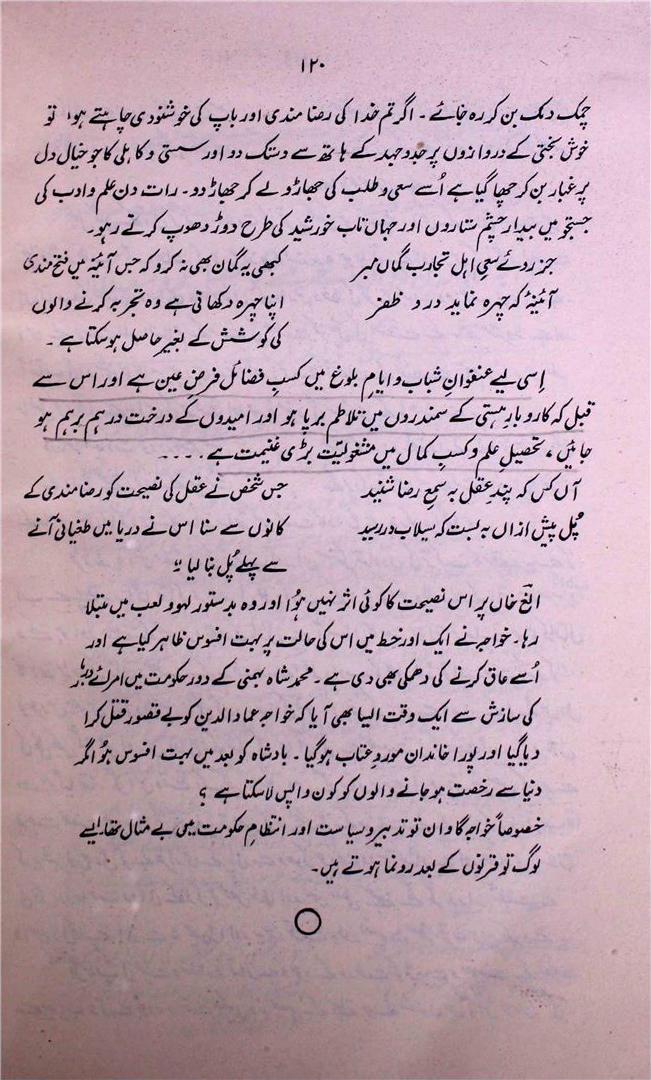 ۱۲۰
چمک دمک بن کر رہ جائے ۔ اگر تم خدا کی رضا مندی اور باپ کی خوشنودی چاہتے ہو، تو
خوش بختی کے دروازوں پر جدوجہد کے ہاتھ سے دستک دو اور سستی و کاہلی کا جو خیال دل
پر غبار بن کر چھا گیا ہے اُسے سعی و طلب کی جھاڑو لے کر جھاڑ دو۔ رات دن علم و ادب کی
جستجو میں بیدار چشم ستاروں اور جہاں تاب خورشید کی طرح دوڑ دھوپ کرتے رہو۔
جز روئے سعیِ اہل تجارب گماں مبر کبھی یہ گمان بھی نہ کرو کہ جس آئینہ میں فتح مندی
آئینۂ کہ چہرہ نماید در و ظفر اپنا چہرہ دکھاتی ہے وہ تجربہ کرنے والوں
کی کوشش کے بغیر حاصل ہو سکتا ہے ۔
اِسی لیے عنفوانِ شباب و ایامِ بلوغ میں کسبِ فضائل فرضِ عین ہے اور اس سے
قبل کہ کاروبارِ ہستی کے سمندروں میں تلاطم برپا ہو اور امیدوں کے درخت درہم برہم ہو
جائیں، تحصیلِ علم و کسبِ کمال میں مشغولیّت بڑی غنیمت ہے ۔ ۔ ۔ ۔
آں کس کہ پندِ عقل بہ سمعِ رضا شنید جس شخص نے عقل کی نصیحت کو رضا مندی کے
پُل پیش ازاں بہ بست کہ سیلاب در رسید کانوں سے سنا اس نے دریا میں طغیانی آنے
سے پہلے پُل بنا لیا ؛؛
الغ خاں پر اس نصیحت کا کوئی اثر نہیں ہؤا اور وہ بدستور لہو و لعب میں مبتلا
رہا۔ خواجہ نے ایک اور خط میں اس کی حالت پر بہت افسوس ظاہر کیا ہے اور
اُسے عاق کرنے کی دھمکی بھی دی ہے ۔ محمد شاہ بہمنی کے دورِ حکومت میں امرائے دربار
کی سازش سے ایک وقت ایسا بھی آیا کہ خواجہ عماد الدین کو بے قصور قتل کرا
دیا گیا اور پورا خاندان موردِ عتاب ہوگیا ۔ بادشاہ کو بعد میں بہت افسوس ہؤا مگر
دنیا سے رخصت ہو جانے والوں کو کون واپس لا سکتا ہے ؟
خصوصاً خواجہ گاوان تو تدبیر و سیاست اور انتظامِ حکومت میں بے مثال تھا۔ ایسے
لوگ تو قرنوں کے بعد رونما ہوتے ہیں۔